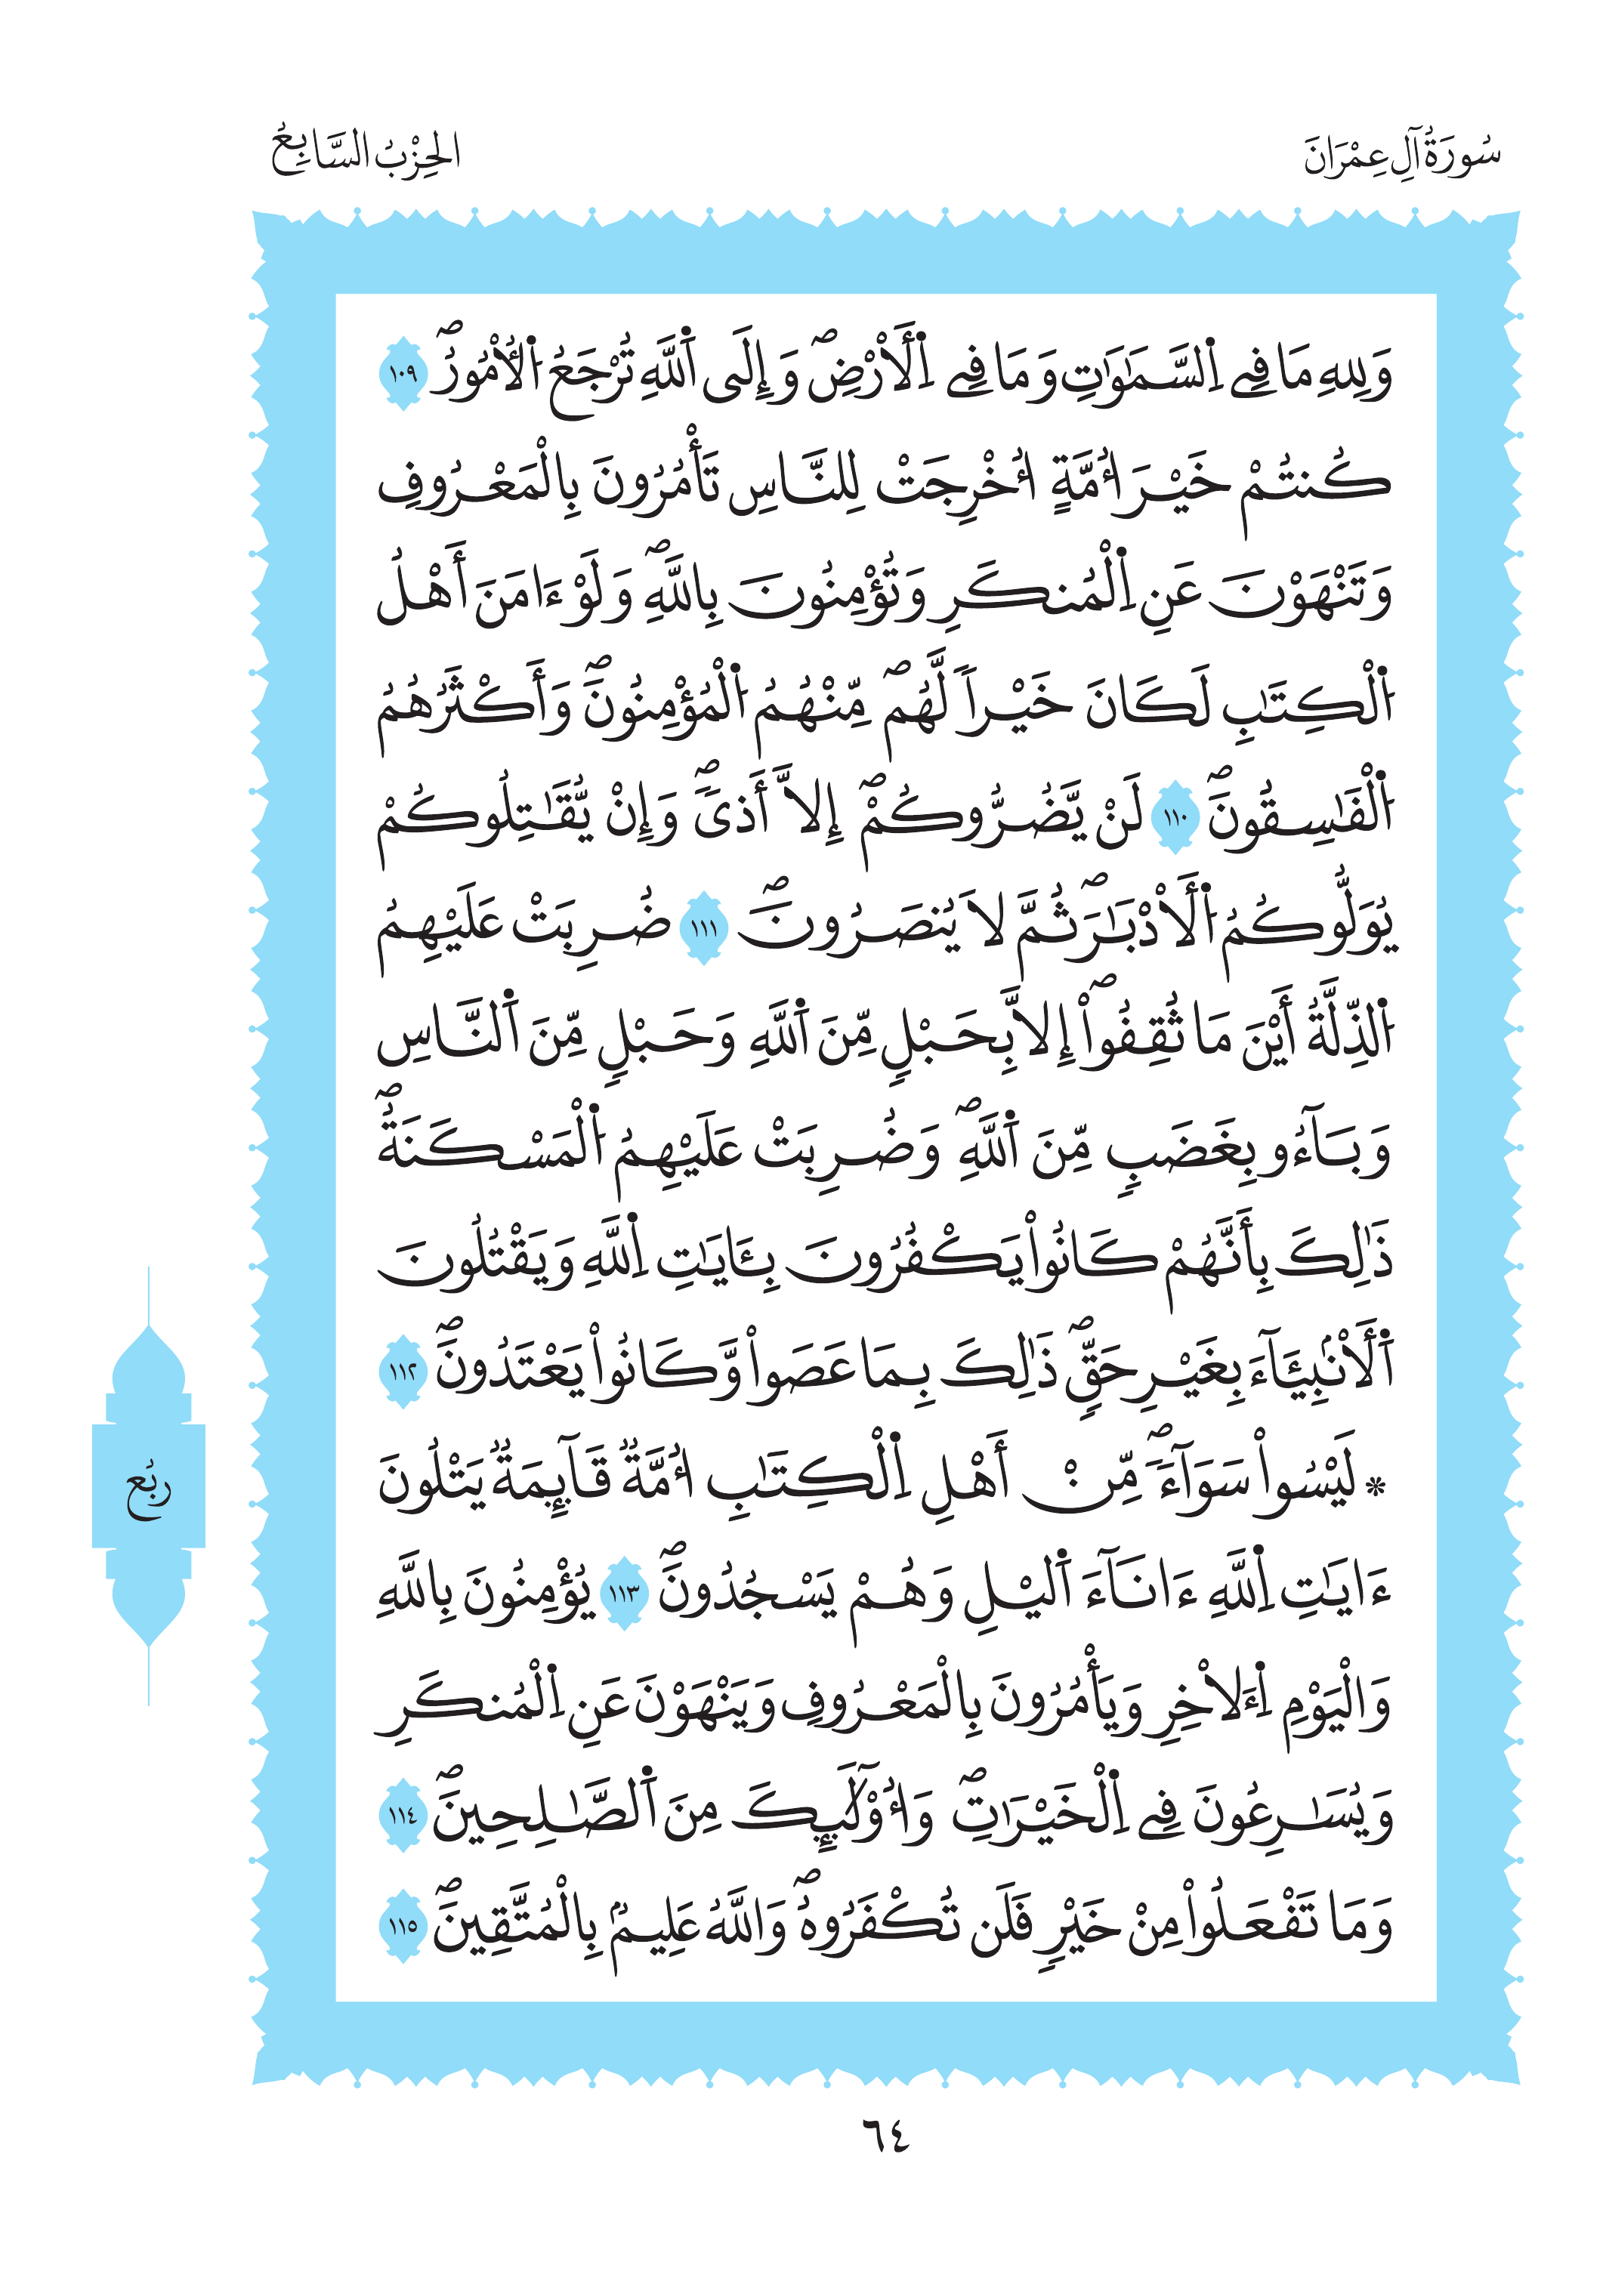 سُورَةُ آلِ عِمْرَانَ
الحِزْبُ السَّابِعُ
وَلِلهِ مَا فِے اِ۬لسَّمَٰوَٰتِ وَمَا فِے اِ۬لَارْضِۖ وَإِلَى اَ۬للَّهِ تُرْجَعُ اُ۬لُامُورُۖ ١٠٩
كُنتُمْ خَيْرَ أُمَّةٍ اُخْرِجَتْ لِلنَّاسِ تَأْمُرُونَ بِالْمَعْرُوفِ
وَتَنْهَوْنَ عَنِ اِ۬لْمُنكَرِ وَتُؤْمِنُونَ بِاللَّهِۖ وَلَوْ ءَامَنَ أَهْلُ
اُ۬لْكِتَٰبِ لَكَانَ خَيْراٗ لَّهُمۖ مِّنْهُمُ اُ۬لْمُؤْمِنُونَۖ وَأَكْثَرُهُمُ
اُ۬لْفَٰسِقُونَۖ ١١٠ لَنْ يَّضُرُّوكُمْۖ إِلَّا أَذىٗۖ وَإِنْ يُّقَٰتِلُوكُمْ
يُوَلُّوكُمُ اُ۬لَادْبَٰرَۖ ثُمَّ لَا يُنصَرُونَۖ ١١١ ضُرِبَتْ عَلَيْهِمُ
اُ۬لذِّلَّةُ أَيْنَ مَا ثُقِفُواْۖ إِلَّا بِحَبْلٍ مِّنَ اَ۬للَّهِ وَحَبْلٍ مِّنَ اَ۬لنَّاسِ
وَبَآءُو بِغَضَبٍ مِّنَ اَ۬للَّهِۖ وَضُرِبَتْ عَلَيْهِمُ اُ۬لْمَسْكَنَةُۖ
ذَٰلِكَ بِأَنَّهُمْ كَانُواْ يَكْفُرُونَ بِـَٔايَٰتِ اِ۬للَّهِ وَيَقْتُلُونَ
اَ۬لَانۢبِيَـَٔآءَ بِغَيْرِ حَقٍّۖ ذَٰلِكَ بِمَا عَصَواْ وَّكَانُواْ يَعْتَدُونَۖ ١١٢
* لَيْسُواْ سَوَآءٗۖ مِّنْ أَهْلِ اِ۬لْكِتَٰبِ أُمَّةٞ قَآئِمَةٞ يَتْلُونَ
ءَايَٰتِ اِ۬للَّهِ ءَانَآءَ اَ۬ليْلِ وَهُمْ يَسْجُدُونَۖ ١١٣ يُؤْمِنُونَ بِاللَّهِ
وَالْيَوْمِ اِ۬لَاخِرِ وَيَأْمُرُونَ بِالْمَعْرُوفِ وَيَنْهَوْنَ عَنِ اِ۬لْمُنكَرِ
وَيُسَٰرِعُونَ فِے اِ۬لْخَيْرَٰتِۖ وَأُوْلَٰٓئِكَ مِنَ اَ۬لصَّٰلِحِينَۖ ١١٤
وَمَا تَفْعَلُواْ مِنْ خَيْرٍ فَلَن تُكْفَرُوهُۖ وَاللَّهُ عَلِيمُۢ بِالْمُتَّقِينَۖ ١١٥
ربُع
٦٤